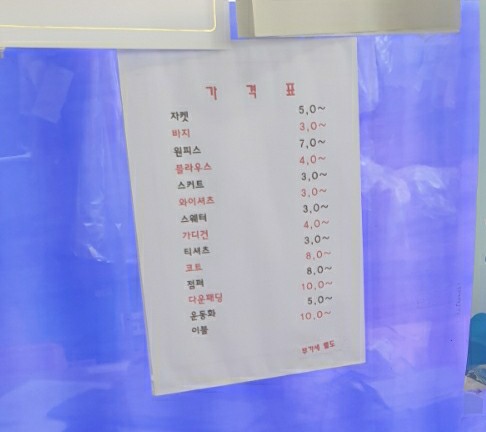 가 격 표
자켓 5,0~
바지 3,0~
원피스 7,0~
블라우스 4,0~
스커트 3,0~
와이셔츠 3,0~
스웨터 3,0~
가디건 4,0~
티셔츠 3,0~
코트 8,0~
점퍼 8,0~
다운패딩 10,0~
운동화 5,0~
이불 10,0~
부가세 별도